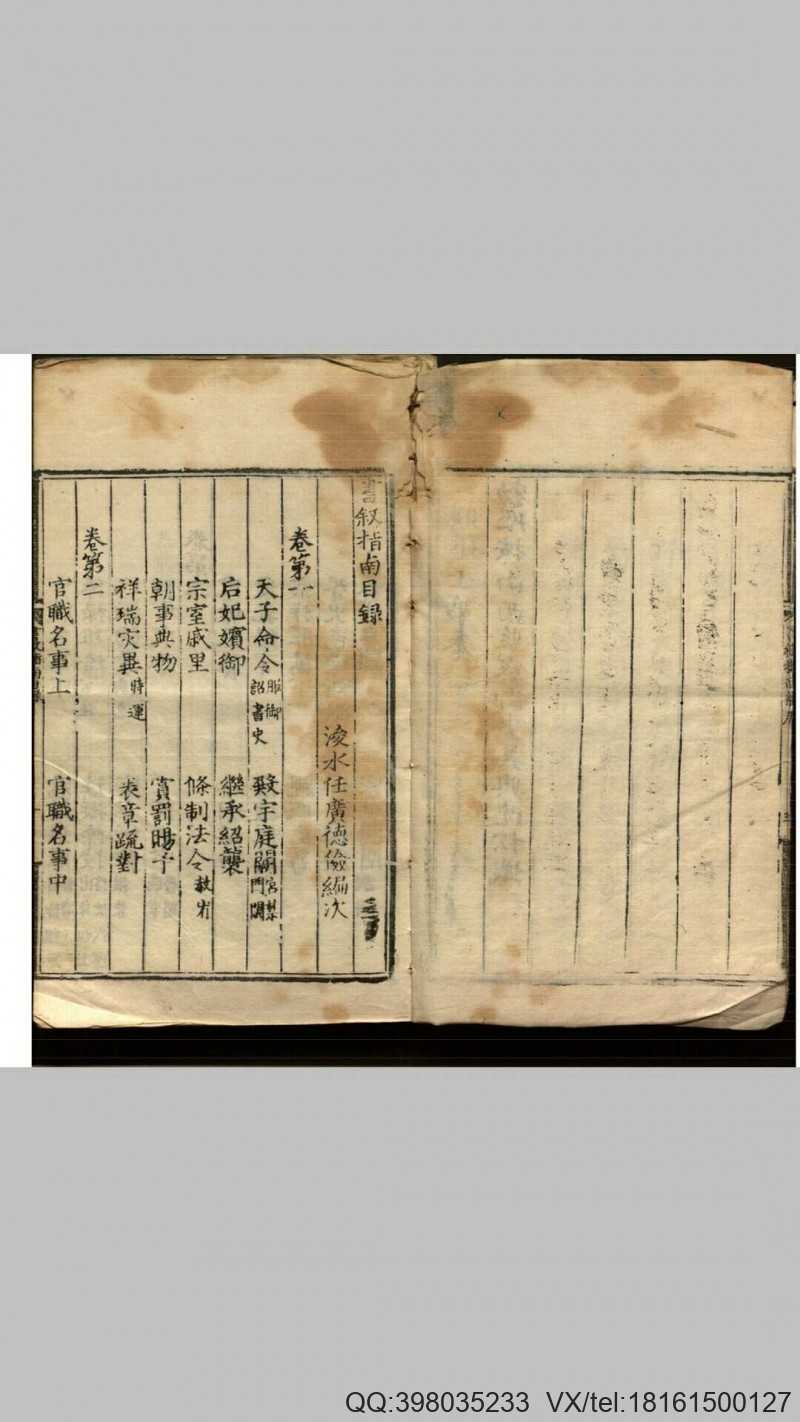 書叙指南目録
浚水任廣德儉編次
卷第一
天子命令服御詔書史 殿宇庭關宮禁門闌
后妃嬪御 繼承紹襲
宗室戚里 條制法令赦宥
朝事典物 賞罰賜予
祥瑞灾異時運 表章疏對
卷第二
官職名事上 官職名事中
QQ:398035233 VX/tel:18161500127